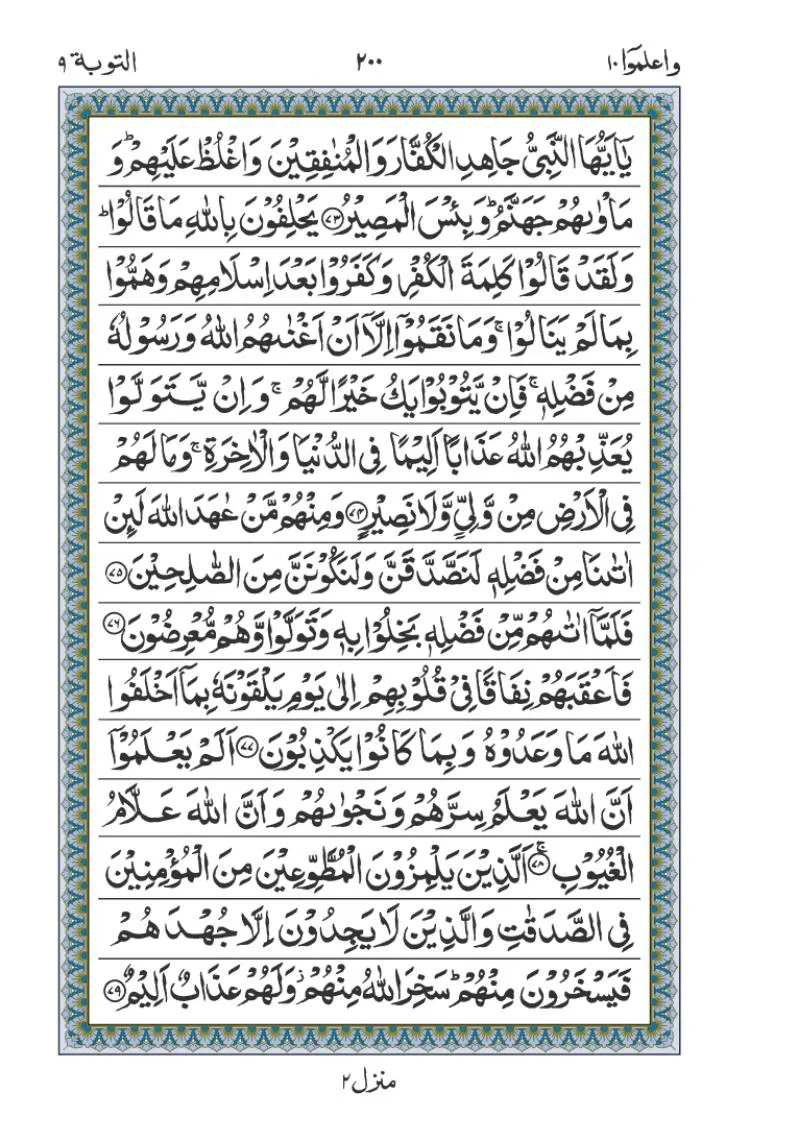 واعلموٓا ۱۰ ۲۰۰ التوبة ۹
يٰۤاَيُّهَا النَّبِىُّ جَاهِدِ الْكُفَّارَ وَالْمُنٰفِقِيْنَ وَاغْلُظْ عَلَيْهِمْ ؕ وَ
مَاْوٰىهُمْ جَهَنَّمُ ؕ وَبِئْسَ الْمَصِيْرُ ﴿۷۳﴾ يَحْلِفُوْنَ بِاللّٰهِ مَا قَالُوْا ؕ
وَلَقَدْ قَالُوْا كَلِمَةَ الْكُفْرِ وَكَفَرُوْا بَعْدَ اِسْلَامِهِمْ وَهَمُّوْا
بِمَا لَمْ يَنَالُوْا ۚ وَمَا نَقَمُوْۤا اِلَّاۤ اَنْ اَغْنٰىهُمُ اللّٰهُ وَرَسُوْلُهٗ
مِنْ فَضْلِهٖ ۚ فَاِنْ يَّتُوْبُوْا يَكُ خَيْرًا لَّهُمْ ۚ وَاِنْ يَّتَوَلَّوْا
يُعَذِّبْهُمُ اللّٰهُ عَذَابًا اَلِيْمًا فِى الدُّنْيَا وَالْاٰخِرَةِ ۚ وَمَا لَهُمْ
فِى الْاَرْضِ مِنْ وَّلِىٍّ وَّلَا نَصِيْرٍ ﴿۷۴﴾ وَمِنْهُمْ مَّنْ عٰهَدَ اللّٰهَ لَئِنْ
اٰتٰىنَا مِنْ فَضْلِهٖ لَنَصَّدَّقَنَّ وَلَنَكُوْنَنَّ مِنَ الصّٰلِحِيْنَ ﴿۷۵﴾
فَلَمَّاۤ اٰتٰىهُمْ مِّنْ فَضْلِهٖ بَخِلُوْا بِهٖ وَتَوَلَّوْا وَّهُمْ مُّعْرِضُوْنَ ﴿۷۶﴾
فَاَعْقَبَهُمْ نِفَاقًا فِىْ قُلُوْبِهِمْ اِلٰى يَوْمِ يَلْقَوْنَهٗ بِمَاۤ اَخْلَفُوا
اللّٰهَ مَا وَعَدُوْهُ وَبِمَا كَانُوْا يَكْذِبُوْنَ ﴿۷۷﴾ اَلَمْ يَعْلَمُوْۤا
اَنَّ اللّٰهَ يَعْلَمُ سِرَّهُمْ وَنَجْوٰىهُمْ وَاَنَّ اللّٰهَ عَلَّامُ
الْغُيُوْبِ ۚ﴿۷۸﴾ اَلَّذِيْنَ يَلْمِزُوْنَ الْمُطَّوِّعِيْنَ مِنَ الْمُؤْمِنِيْنَ
فِى الصَّدَقٰتِ وَالَّذِيْنَ لَا يَجِدُوْنَ اِلَّا جُهْدَهُمْ
فَيَسْخَرُوْنَ مِنْهُمْ ؕ سَخِرَ اللّٰهُ مِنْهُمْ ؗ وَلَهُمْ عَذَابٌ اَلِيْمٌ ﴿۷۹﴾
منزل ۲